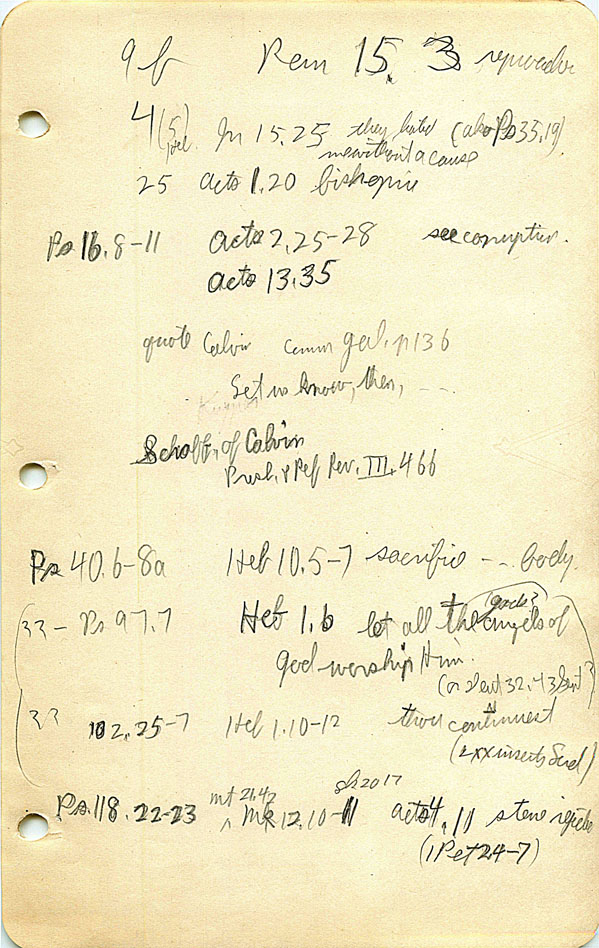 9b Rom 15. 3 reproaches
4(5) Jn 15.25 they hated (also Ps 35.19)
me without a cause
25 Acts 1.20 bishopric
Ps 16.8-11 Acts 2.25-28 see corruption.
Acts 13.35
quote Calvin Comm Gal. p 136
Let us know, then, ---
of Calvin
Presb. & Ref Rev. III. 466
Ps 40.6-8a Heb 10.5-7 sacrifice --- body.
?? - Ps 97.7 Heb 1.6 let all the angels of
(gods?
God worship Him.
(or Deut 32.43
?? 102.25-7 Heb 1.10-12 thou continuest
(LXX inserts
Ps. 118.22-23 Mt 21.42 Mk 12.10-11 Lk 20 17 Acts 4.11 stone
(1 Pet 2 4-7)